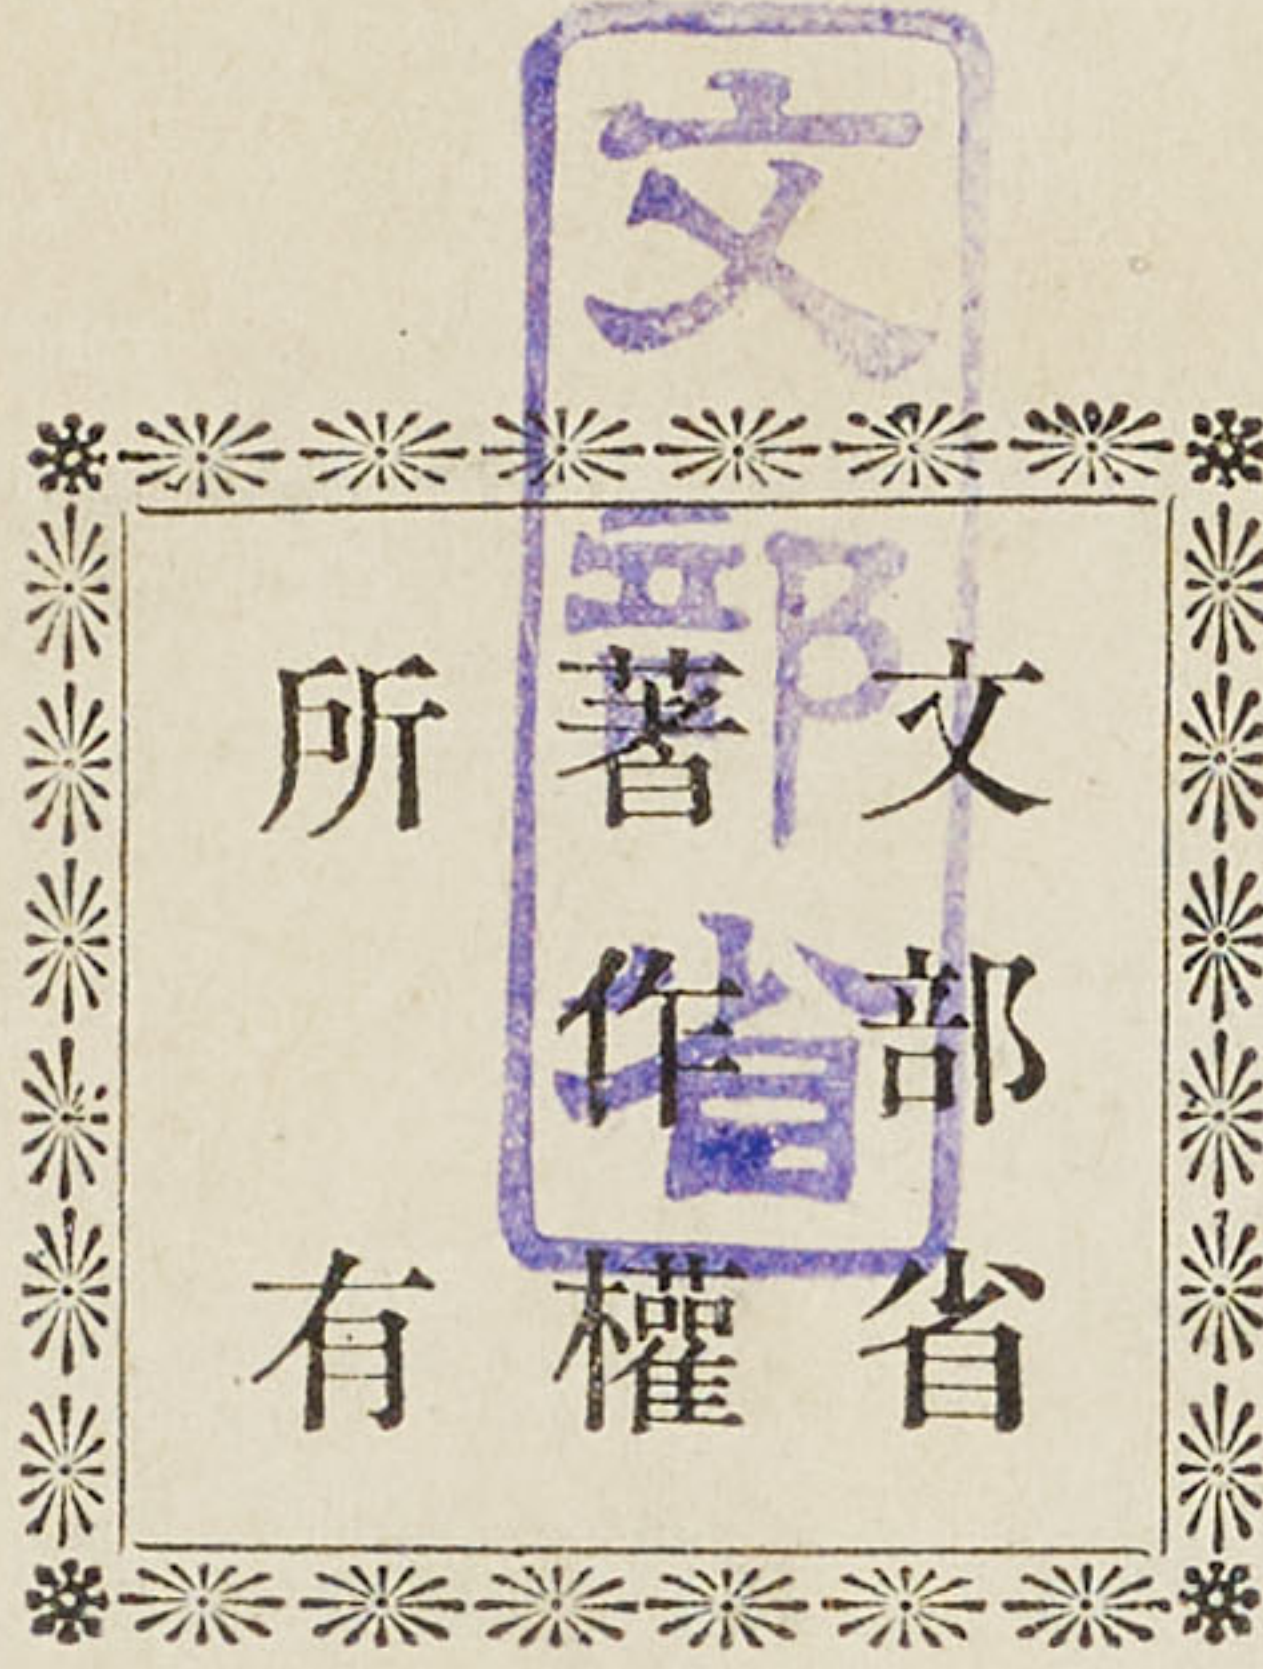 文部省
文部省
著作權
所有